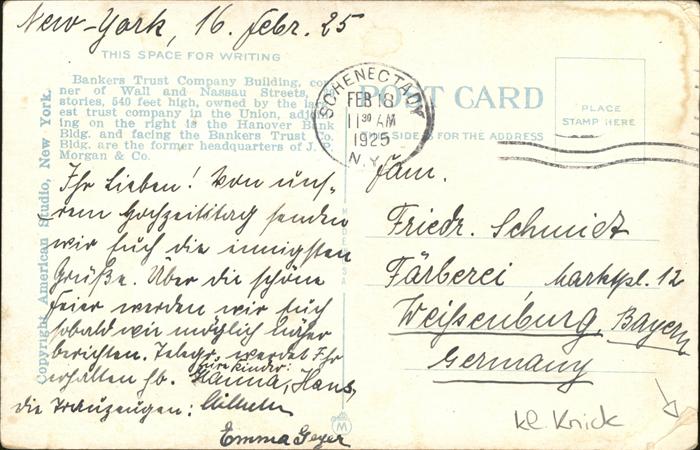 New-York, 16. Febr. 25
THIS SPACE FOR WRITING
Bankers Trust Company Building, cor-
ner of Wall and Nassau Streets,
stories, 540 feet high, owned by the
est trust company in the Union,
ing on the right is the Hanover Bank
Bldg. and facing the Bankers Trust
Bldg. are the former headquarters of J. P.
Morgan & Co.
Copyright American Studio, New York.
Ihr Lieben! Von uns-
rem Hochzeitstag senden
wir Euch die innigsten
Grüße. Über die schöne
Feier werden wir Euch
sobald wie möglich näher
berichten. Telegr. werdet Ihr
erhalten hb. Eure Kinder:
Hanna, Hans,
die Trauzeugen: Wilhelm
Emma Geyer
SCHENECTADY
FEB 18
11 30 AM
1925
N.Y.
POST CARD
THIS SIDE IS FOR THE ADDRESS
PLACE
STAMP HERE
MADE IN USA
M
Fam.
Friedr. Schmidt
Färberei Marktpl. 12
Weißenburg, Bayern
Germany
kl. Knick